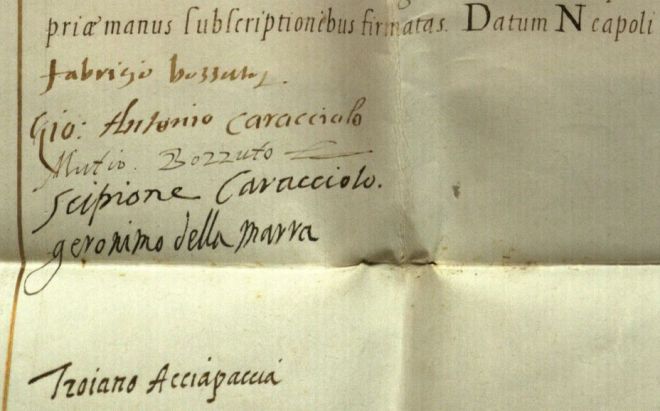 priæ manus subscriptionebus firmatas. Datum Neapoli
fabrisio bozzuto
Gio: Antonio Caracciolo
Mutio Bozzuto
Scipione Caracciolo.
geronimo della marra
Troiano Acciapaccia